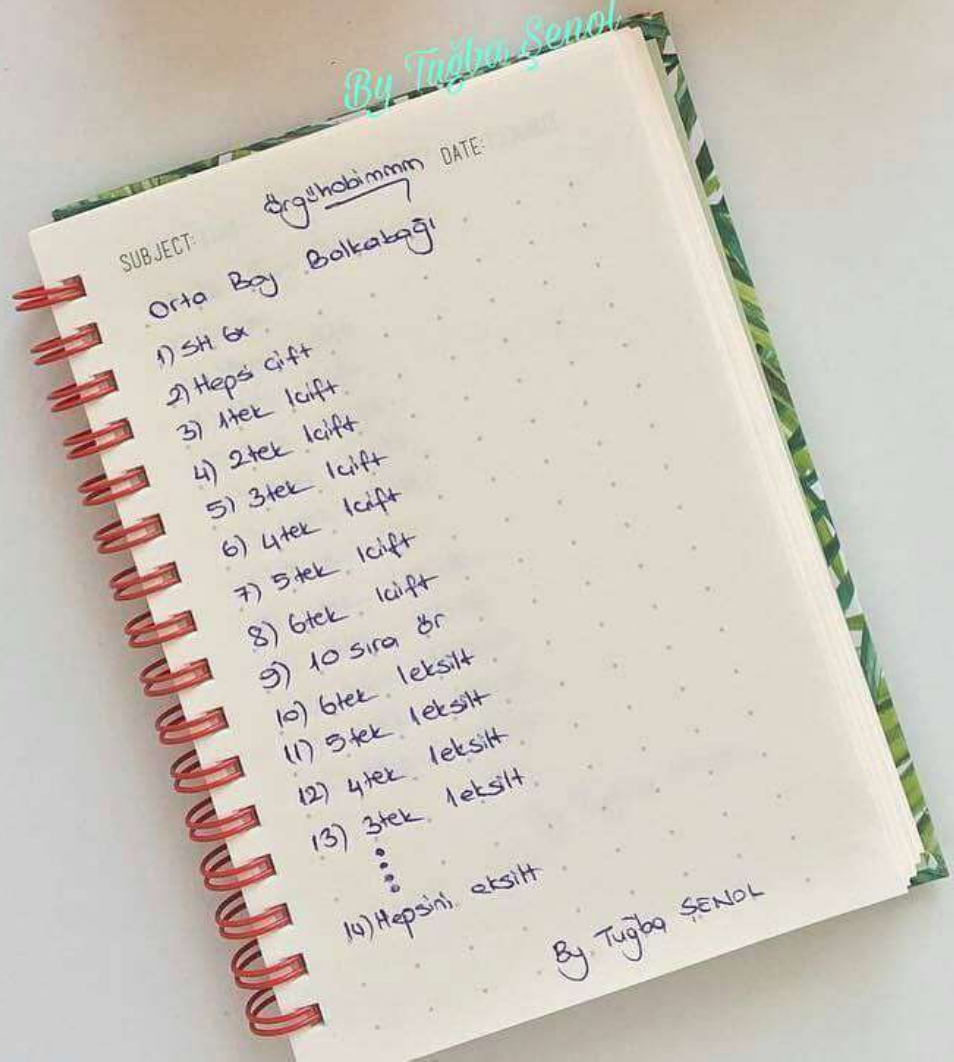 By Tuğba Şenol
örgühobimmm DATE:
SUBJECT:
Orta Boy Balkabağı
1) SH 6x
2) Hepsi çift
3) 1tek 1çift
4) 2tek 1çift
5) 3tek 1çift
6) 4tek 1çift
7) 5tek 1çift
8) 6tek 1çift
9) 10 sıra ör
10) 6tek 1eksilt
11) 5tek 1eksilt
12) 4tek 1eksilt
13) 3tek 1eksilt
14) Hepsini eksilt
By Tuğba ŞENOL